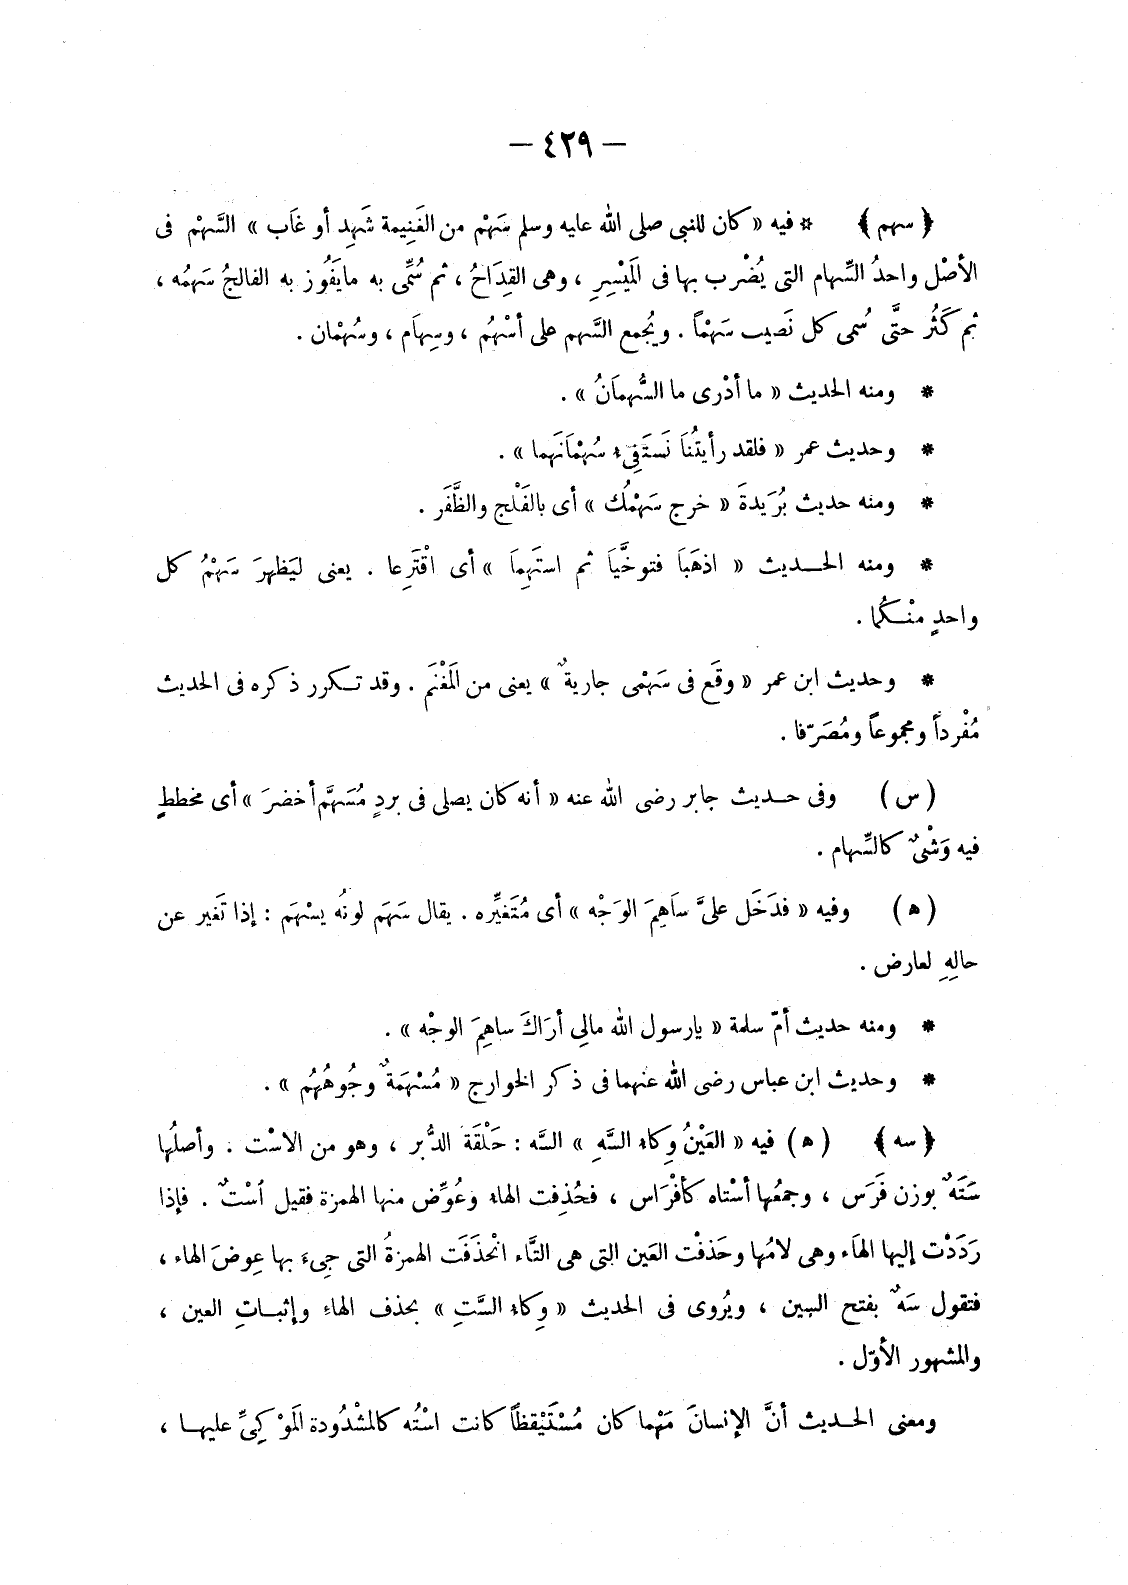 — ٤٢٩ —
﴿ سهم ﴾ * فيه « كان للنبى صلى الله عليه وسلم سَهْم من الغَنِيمة شَهِد أو غَاب » السَّهْم فى
الأصْل واحدُ السِّهام التى يُضْرب بها فى المَيْسِرِ ، وهى القِدَاحُ ، ثم سُمِّى به مايَفُوز به الفالجُ سَهمُه ،
ثم كَثُر حتَّى سُمى كل نَصيب سَهْماً . ويُجمع السَّهم على أسْهُم ، وسِهاَم ، وسُهْمان .
* ومنه الحديث « ما أدْرى ما السُّهمَانُ » .
* وحديث عمر « فلقد رأيتُنَا نَستَفِىء سُهْمَانَهما » .
* ومنه حديث بُرَيدةَ « خرج سَهْمُك » أى بالفَلْج والظَّفَر .
* ومنه الحـــديث « اذهَبَا فتوخَّيَا ثم استَهِمَا » أى اقْتَرِعا . يعنى ليَظهرَ سَهْمُ كل
واحدٍ منْـكُما .
* وحديث ابن عمر « وقَع فى سَهْمى جاريةٌ » يعنى من المَغْنَم . وقد تـكرر ذكره فى الحديث
مُفْرداً ومجموعاً ومُصَرّفا .
( س ) وفى حـديث جابر رضى الله عنه « أنه كان يصلى فى بردٍ مُسَهَّم أخضرَ » أى مخططٍ
فيه وَشْىٌ كالسِّهام .
( ه ) وفيه « فدَخَل علىَّ ساَهِمَ الوَجْه » أى مُتَغيِّره . يقال سَهَم لونُه يسْهَم : إذا تَغير عن
حالِهِ لعارض .
* ومنه حديث أمّ سلمة « يارسول الله مالِى أرَاكَ ساهِمَ الوجْه » .
* وحديث ابن عباس رضى الله عنهما فى ذكر الخوارج « مُسْهَمَةٌ وجُوهُهُم » .
﴿ سه ﴾ ( ه ) فيه « العَيْنُ وِكاء السَّهِ » السَّه : حَلْقَة الدُّبر ، وهو من الاسْت . وأصلُها
سَتَهٌ بوزن فَرَس ، وجمعُها أسْتاه كأفْرَاس ، فحُذِفت الهاء وعُوِّض منها الهمزة فقيل أسْتٌ . فإذا
رَدَدْت إليها الهَاء وهى لامُها وحَذفْت العَين التى هى التَّاء انْحَذَفَت الهمزةُ التى جِىءَ بها عِوضَ الهاء ،
فتقول سَهٌ بفتح السين ، ويُروى فى الحديث « وِكاء السَّتِ » بحذف الهاءِ وإثبـاتِ العين ،
والمشهور الأوّل .
ومعنى الحـديث أنَّ الإنسانَ مَهْما كان مُسْتَيْقظاً كانت اسْتُه كالمشْدُودة المَوْكِىِّ عليهـا ،